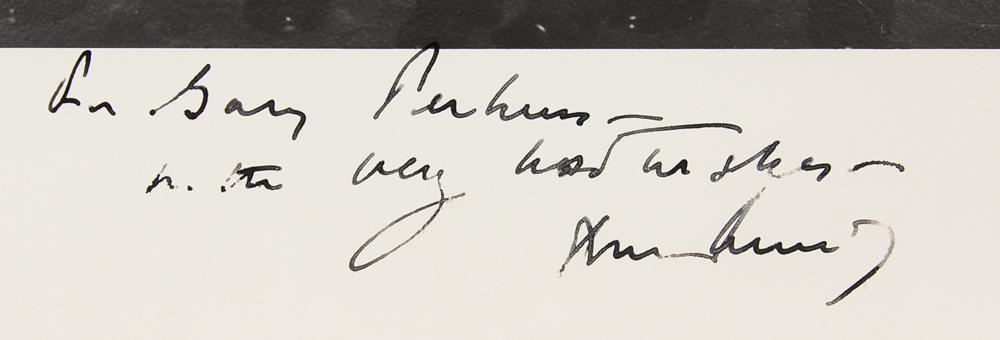 For Gary Perkins —
with very best wishes —